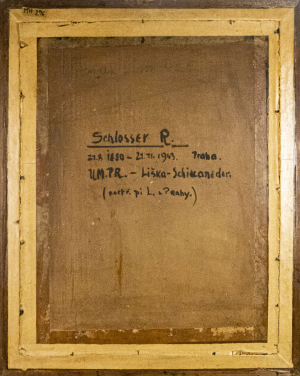 Schlosser R.
1880 – 1943. Praha.
U.M.P.R. – Liška – Schikaneder.
(portr. pí L. z Prahy.)